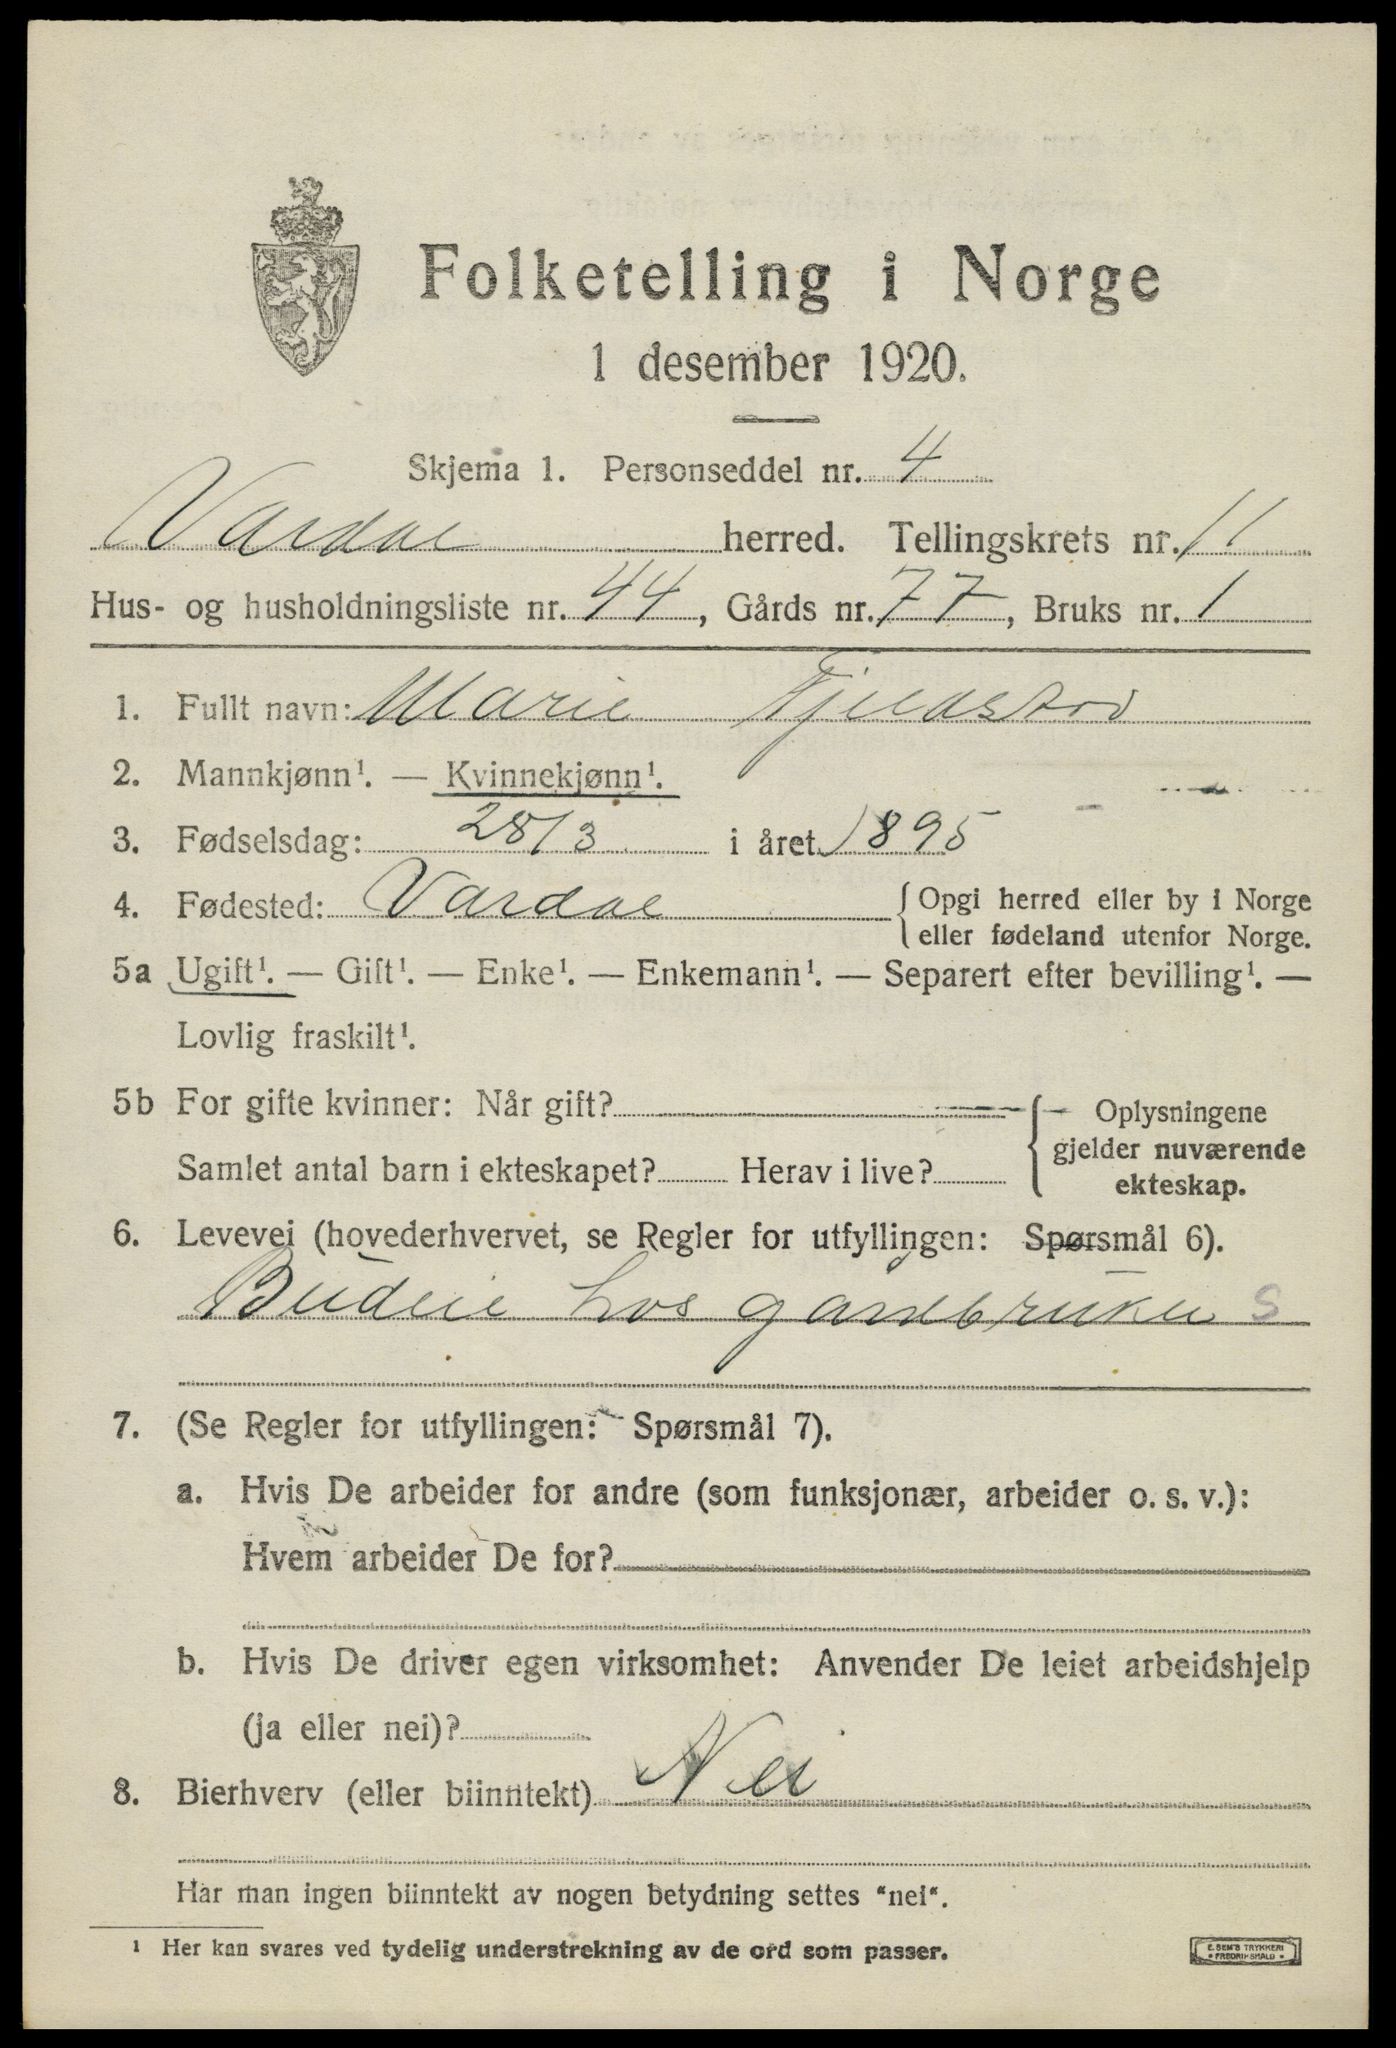 Folketelling i Norge
1 desember 1920.
Skjema 1. Personseddel nr. 4
Vardal herred. Tellingskrets nr. 11
Hus- og husholdningsliste nr. 44, Gårds nr. 77, Bruks nr. 1
1. Fullt navn: Marie Fjeldstad
2. Mannkjønn¹. — Kvinnekjønn¹.
3. Fødselsdag: 28/3 i året 1895
4. Fødested: Vardal { Opgi herred eller by i Norge
eller fødeland utenfor Norge.
5a Ugift¹. — Gift¹. — Enke¹. — Enkemann¹. — Separert efter bevilling¹. —
Lovlig fraskilt¹.
5b For gifte kvinner: Når gift? { Oplysningene
gjelder nuværende
Samlet antal barn i ekteskapet? Herav i live?
ekteskap.
6. Levevei (hovederhvervet, se Regler for utfyllingen: Spørsmål 6).
Budeie hos gårdbruker S
7. (Se Regler for utfyllingen: Spørsmål 7).
a. Hvis De arbeider for andre (som funksjonær, arbeider o. s. v.):
Hvem arbeider De for?
b. Hvis De driver egen virksomhet: Anvender De leiet arbeidshjelp
(ja eller nei)?
8. Bierhverv (eller biinntekt) Nei
Har man ingen biinntekt av nogen betydning settes "nei".
¹ Her kan svares ved tydelig understrekning av de ord som passer.
E. SEM'S TRYKKERI
FREDRIKSHALD